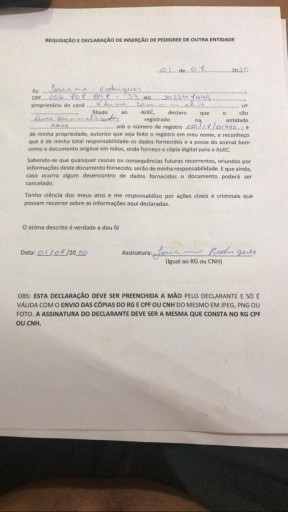 REQUISIÇÃO E DECLARAÇÃO DE INSERÇÃO DE PEDIGREE DE OUTRA ENTIDADE
01 de 07 2020
Eu Rodrigues
CPF RG
proprietário do canil nº
filiado ao ALKC, declaro que o cão
registrado na entidade
sob o número de registro é
de minha propriedade, autorizo que seja feito o registro em meu nome, e reconheço
que é de minha total responsabilidade os dados fornecidos e a posse do animal bem
como o documento original em mãos, onde forneço a cópia digital para o ALKC.
Sabendo-se que quaisquer causas ou consequências futuras recorrentes, oriundos por
informações deste documento fornecido, serão de minha responsabilidade. E que ainda,
caso ocorra algum desencontro de dados fornecidos o documento poderá ser
cancelado.
Tenho ciência dos meus atos e me responsabilizo por ações cíveis e criminais que
possam recorrer sobre as informações aqui declaradas.
O acima descrito é verdade e dou fé
Data: 01/07/2020 Assinatura: Rodrigues
(Igual ao RG ou CNH)
OBS: ESTA DECLARAÇÃO DEVE SER PREENCHIDA A MÃO PELO DECLARANTE E SÓ É
VÁLIDA COM O ENVIO DAS CÓPIAS DO RG E CPF OU CNH DO MESMO EM JPEG, PNG OU
FOTO. A ASSINATURA DO DECLARANTE DEVE SER A MESMA QUE CONSTA NO RG CPF
OU CNH.